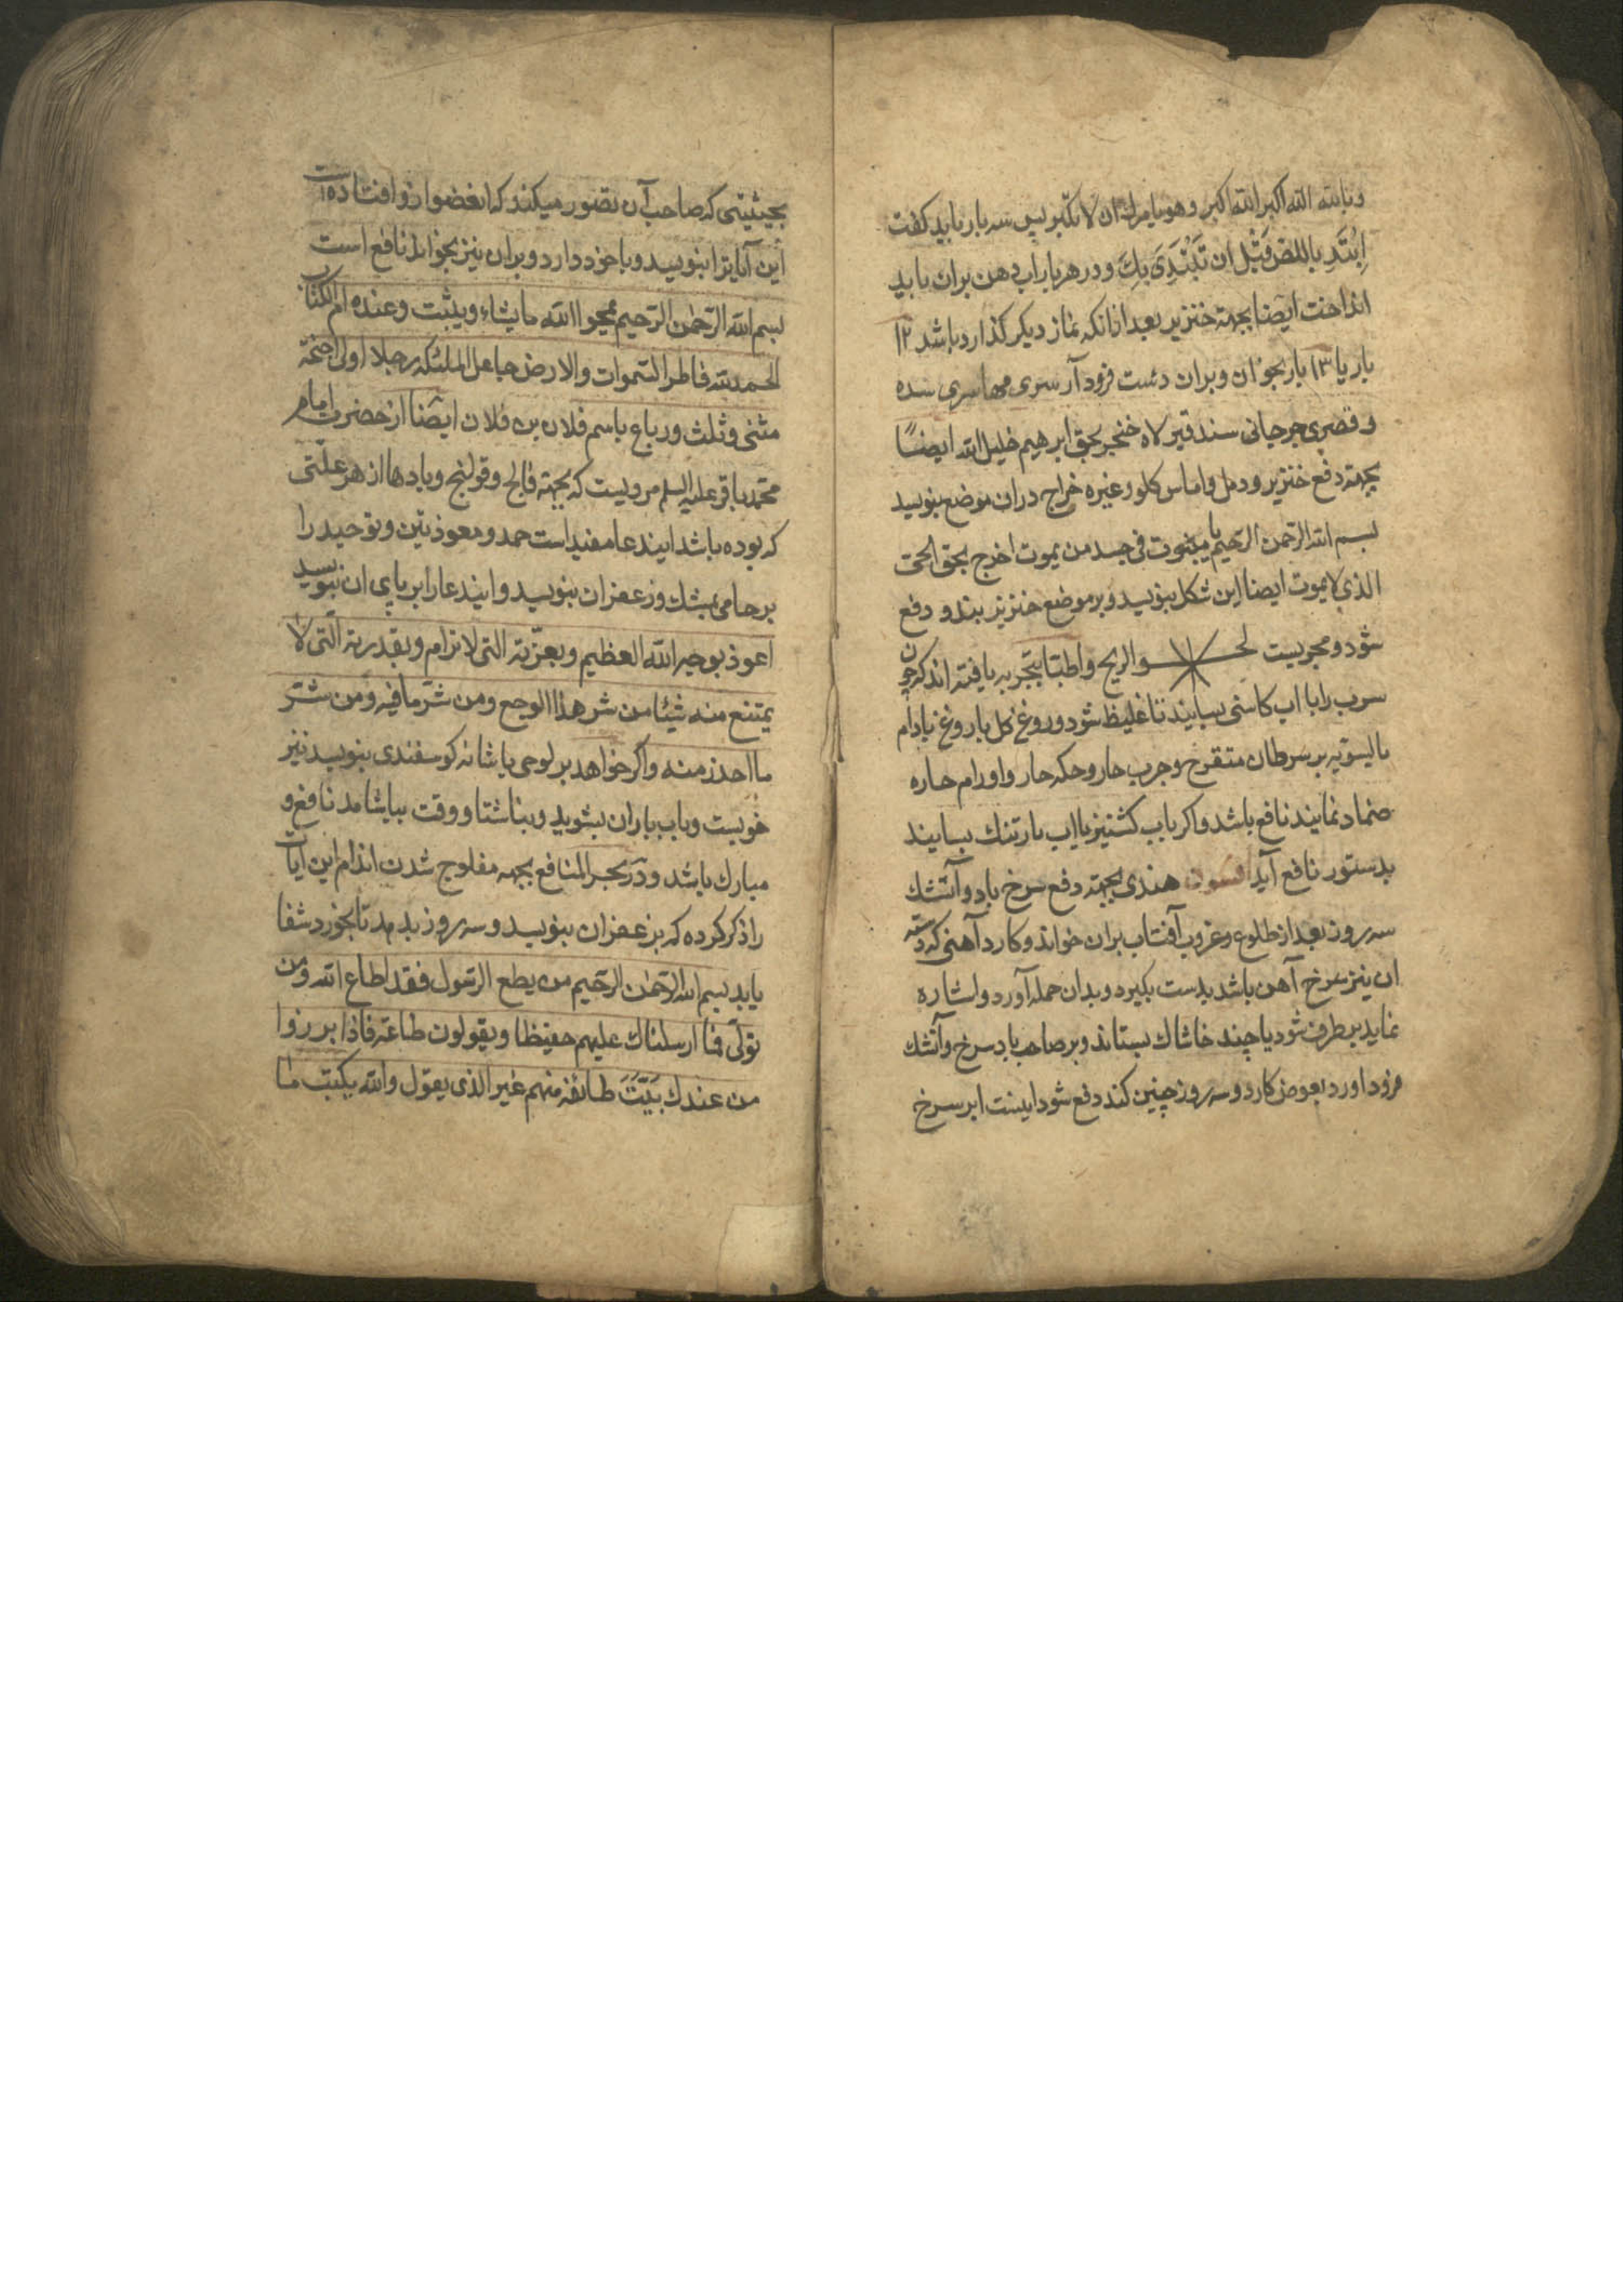 و بالله الله اکبر الله اکبر و هو یامرك ان لا تکبر پس سه بار باید کفت
اِبْتَدِ بالمضی قَبْل ان تَبْتَدِیَ بِكَ و در هر بار اب دهن بران باید
انداخت ایضا بجهته خنزیر بعد از انکه نماز دیکر کذارده باشد ۱۲
بار یا ۱۳ بار بخوان و بران دست فرود آر سری مهاسری سده
و قصری جرجانی سند قیر لاه خنجر بحق ابرهیم خلیل الله ایضًا
بجهته دفع خنزیر و دمل و اماس کلو و غیره خراج دران موضع بنویسد
بسم الله الرحمن الرحیم یا میبخوت فی جسد من یموت اخرج بحق الحی
الذی لا یموت ایضا این شکل بنویسد و بر موضع خنزیر بندد دفع
شود و مجربست والریح و اطبّا بتجربه یافته اند که چون
سرب را با اب کاسنی بسایند تا غلیظ شود و روغن کل یا روغن بادام
بالسویه بر سرطان متقرح و جرب حار و حکه حار و اورام حاره
ضماد نمایند نافع باشد و اکر باب کشنیز یا اب بارتنك بسایند
بدستور نافع آید افسون هندی بجهته دفع سرخ باد و آتشك
سه روز بعد از طلوع و غروب آفتاب بران خواند و کارد آهنی که دسته
ان نیز سرخ آهن باشد بدست بکیرد و بدان حمله آورد و اشاره
نماید برطرف شود یا چند خاشاك بستاند و بر صاحب باد سرخ و آتشك
فرود اورد بعوض کارد و سه روز چنین کند دفع شود اینست ابر سرخ
بحیثیتی که صاحب آن تصور میکند که ان عضو از و افتاده است
این آیاترا بنویسد و با خود دارد و بران نیز بخواند نافع است
بسم الله الرّحمن الرّحیم یمحوا الله ما یشاء و یثبت و عنده ام الکتاب
الحمد لله فاطر السّموات والارض جاعل الملئکه رجلا اولی اجنحة
مثنی و ثلث و رباع باسم فلان بن فلان ایضًا از حضرت امام
محمّد باقر علیه السلم مرویست که بجهته فالج و قولنج و بادها از هر علّتی
که بوده باشد ایندعا مفید است حمد و معوذتین و توحید را
بر جامی بمشك و زعفران بنویسد و ایندعا را بر پای ان بنویسد
اعوذ بوجه الله العظیم و بعزّته التی لا ترام و بقدرته الّتی لا
یمتنع منه شیئا من شر هذا الوجع و من شرّ ما فیه و من شرّ
ما احذر منه و اکر خواهد بر لوحی یا شانه کوسفندی بنویسد نیز
خوبست و باب باران بشوید و بناشتا و وقت بیاشامد نافع و
مبارك باشد و در بحر المنافع بجهه مفلوج شدن اندام این ایات
را ذکر کرده که بزعفران بنویسد و سه روز بدمد تا بخورد شفا
یابد بسم الله الرّحمن الرّحیم من یطع الرّسول فقد اطاع الله و من
تولّی فما ارسلناك علیهم حفیظا و یقولون طاعة فاذا برزوا
من عندك بَیَّتَ طائفة منهم غیر الذی یقول والله یکتب ما